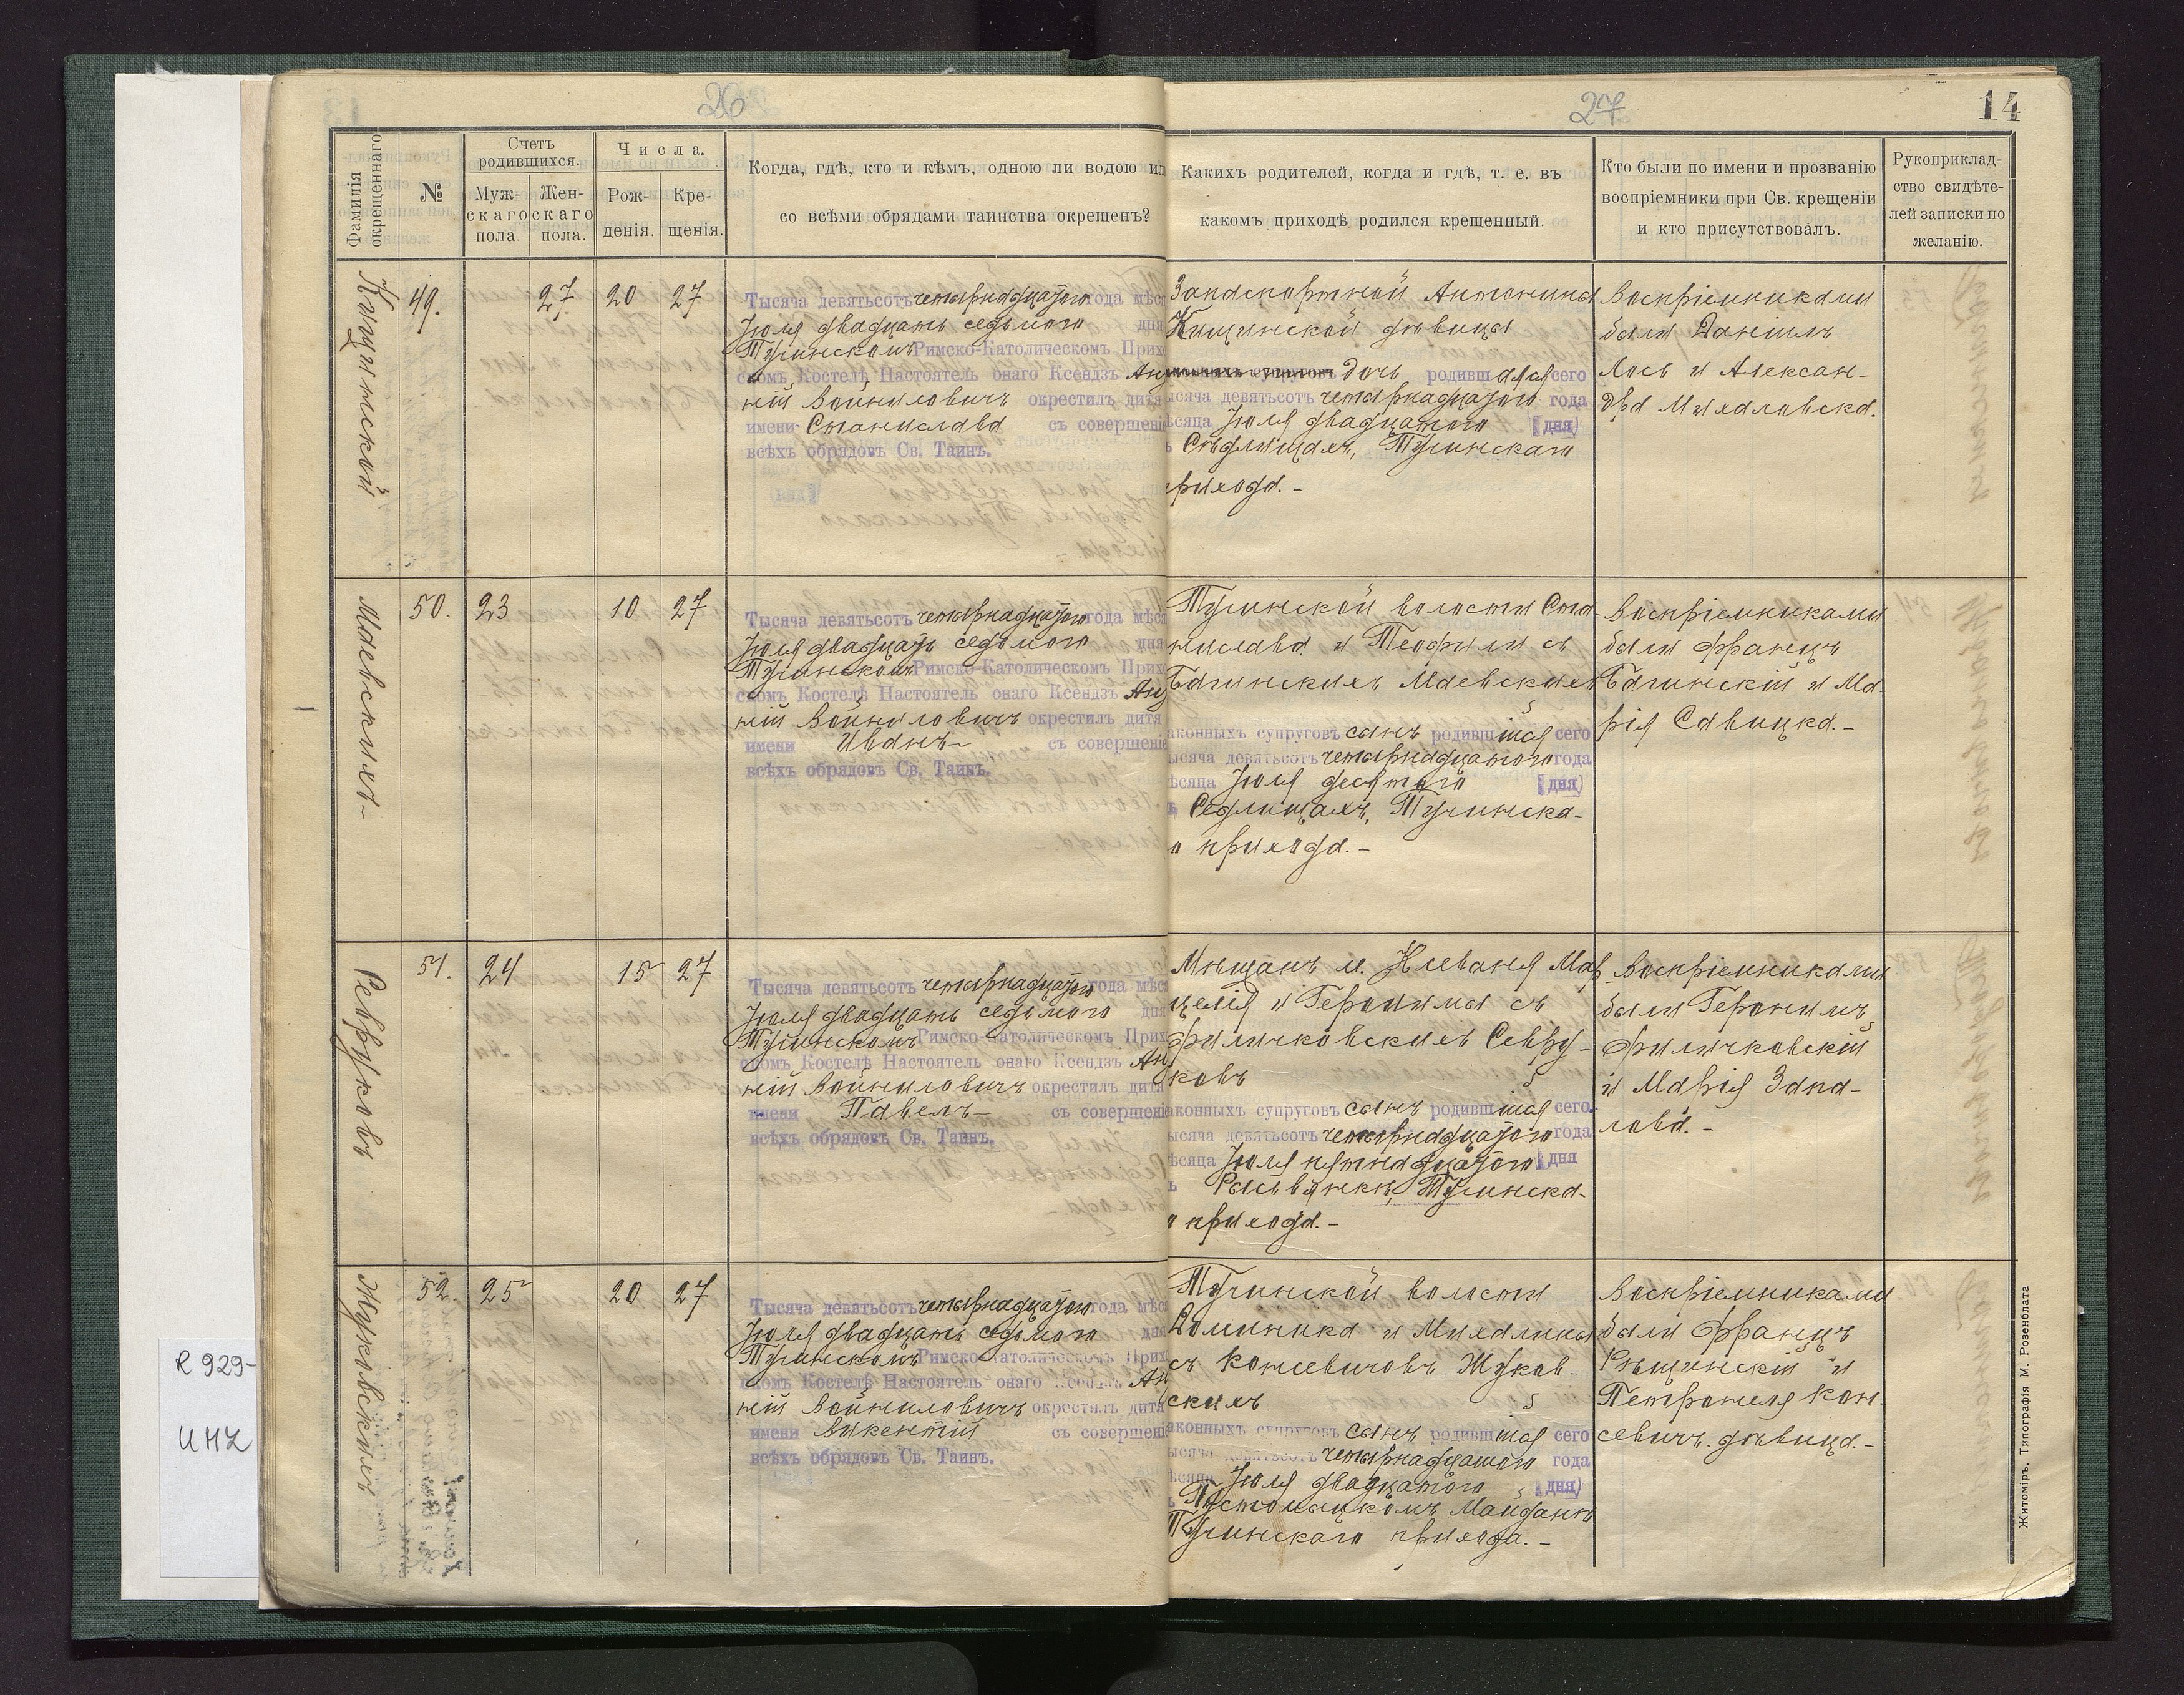 26
27
14
Фамилія окрещеннаго
№
Счетъ родившихся.
Муж-
скаго
пола
Жен-
скаго
пола.
Числа.
Рож-
денія.
Кре-
щенія.
Когда, гдѣ, кто и кѣмъ, одною ли водою ил
со всѣми обрядами таинства окрещенъ?
Какихъ родителей, когда и гдѣ, т. е. въ
какомъ приходѣ родился крещенный.
Кто были по имени и прозванію
воспріемники при Св. крещеніи
и кто присутствовалъ.
Рукоприклад-
ство свидѣте-
лей записки по
желанію.
Кищинской
49.
27
20
27
Тысяча девятьсотъ четырнадцатого года мѣс
Іюля двадцать седьмого дня
Тучинскомъ Римско-Католическомъ Прих
скомъ Костелѣ Настоятель онаго Ксендзъ Ан
ній Войниловичъ окрестилъ дитя
имени Станислава съ совершені
всѣхъ обрядовъ Св. Таинъ.
Запаспортной Антонины
Кищинской дѣвицы
аконныхъ супруговъ дочь родившаяся сего
ысяча девятьсотъ четырнадцатого года
ѣсяца Іюля двадцатого (дня)
ъ Сѣдлищахъ, Тучинскаго
прихода. -
Воспріемниками
были Даніилъ
Лось и Алексан-
дра Михаловска.
Маевскихъ
50.
23
10
27
Тысяча девятьсотъ четырнадцатого года мѣс
Іюля двадцать седьмого дня
Тучинскомъ Римско-Католическомъ Прих
скомъ Костелѣ Настоятель онаго Ксендзъ Ан
ній Войниловичъ окрестилъ дитя
имени Иванъ съ совершені
всѣхъ обрядовъ Св. Таинъ.
Тучинской волости Ста-
нислава и Теофили съ
Багинскихъ Маевскихъ
аконныхъ супруговъ сынъ родившійся сего
ысяча девятьсотъ четырнадцатого года
ѣсяца Іюля десятого (дня)
ъ Седлищахъ, Тучинска-
о прихода. -
Воспріемниками
были Францъ
Багинскій и Ма-
рія Савицка. -
Севруковъ
51.
24
15
27
Тысяча девятьсотъ четырнадцатого года мѣс
Іюля двадцать седьмого дня
Тучинскомъ Римско-Католическомъ Прих
скомъ Костелѣ Настоятель онаго Ксендзъ Ан
ній Войниловичъ окрестилъ дитя
имени Павелъ съ совершені
всѣхъ обрядовъ Св. Таинъ.
Мѣщанъ м. Клеваня Мар-
целія и Героимы съ
Филичковскихъ Севру-
ковъ
аконныхъ супруговъ сынъ родившійся сего
ысяча девятьсотъ четырнадцатого года
ѣсяца Іюля пятнадцатого дня
ъ Рысвянкѣ, Тучинска-
о прихода. -
Воспріемниками
были Геронимъ
Филичковскій
и Марія Запа-
лова. -
Жуковскихъ
52.
25
20
27
Тысяча девятьсотъ четырнадцатого года мѣс
Іюля двадцать седьмого дня
Тучинскомъ Римско-Католическомъ Прих
скомъ Костелѣ Настоятель онаго Ксендзъ Ан
ній Войниловичъ окрестилъ дитя
имени Викентій съ совершені
всѣхъ обрядовъ Св. Таинъ.
Тучинской волости
Доминика и Михалины
съ Консевичовъ Жуков-
скихъ
аконныхъ супруговъ сынъ родившійся сего
ысяча девятьсотъ четырнадцатого года
ѣсяца Іюля двадцатого (дня)
ъ Пустомыцкомъ Майданѣ
Тучинскаго прихода. -
Воспріемниками
были Францъ
Рѣщинскій и
Петронеля Кон-
севичъ дѣвица. -
Житоміръ, Типографія М. Розенблата
R 929-
UMZ